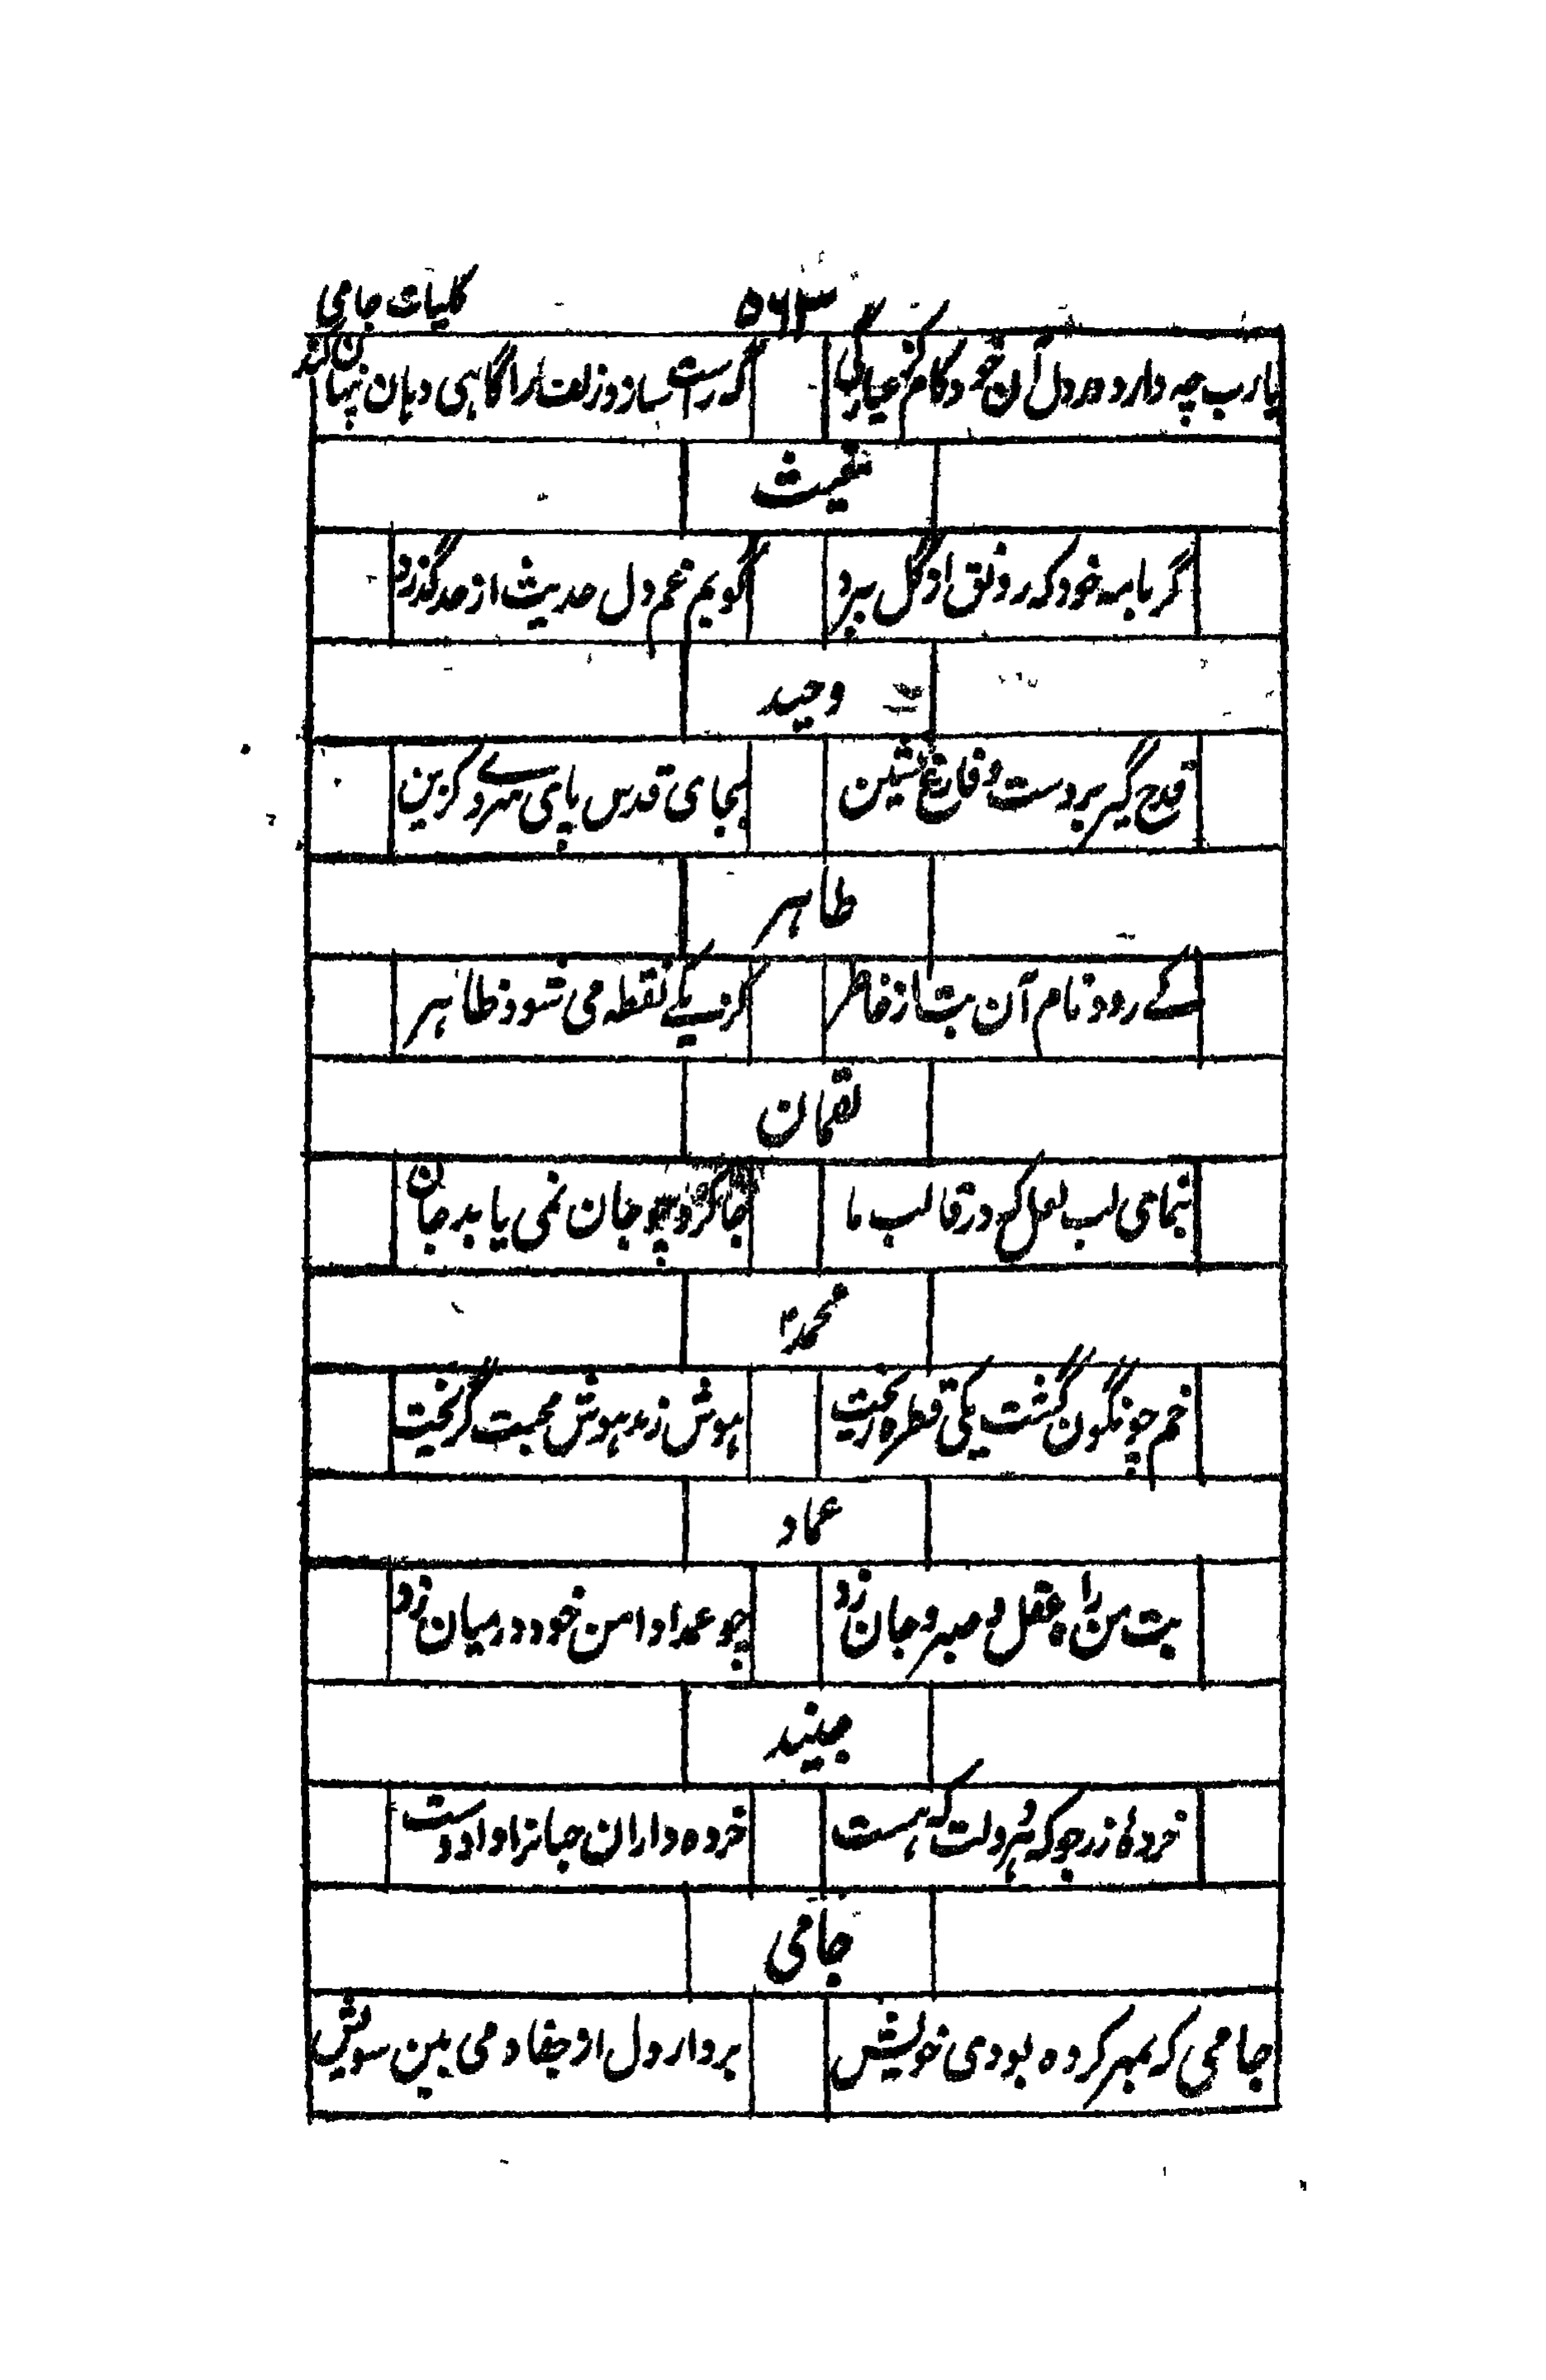 ۵۶۳ کلیات جامی
یارب چه دارد در دل آن خود کام کز عیارگی گه راست سازد زلف را گاهی دهان پنهان کند
مغیث
گر با مه خود که رونق از گل ببرد گویم غم دل حدیث از حد گذرد
وحید
قدح گیر بر دست و فارغ نشین بجای قدس پای سروے گزین
طاهر
کے رود نام آن بت از خاطر کز یکے نقطه می شود ظاهر
لقمان
بنمای لب لعل که در قالب ما جا کرده چو جان نمی یابد جان
محمد
خم چو نگون گشت یکی قطره ریخت هوش ز مدهوش محبت گریخت
عماد
بت من راه عقل و صبر و جان زد چو عمدا دامن خود در میان زد
جنید
خردهٔ زر جو که هر دولت که هست خرده داران جهانرا داد دست
جامی
جامی که بمهر کرده بودی خویش بردار دل از جفا و می بین سویش